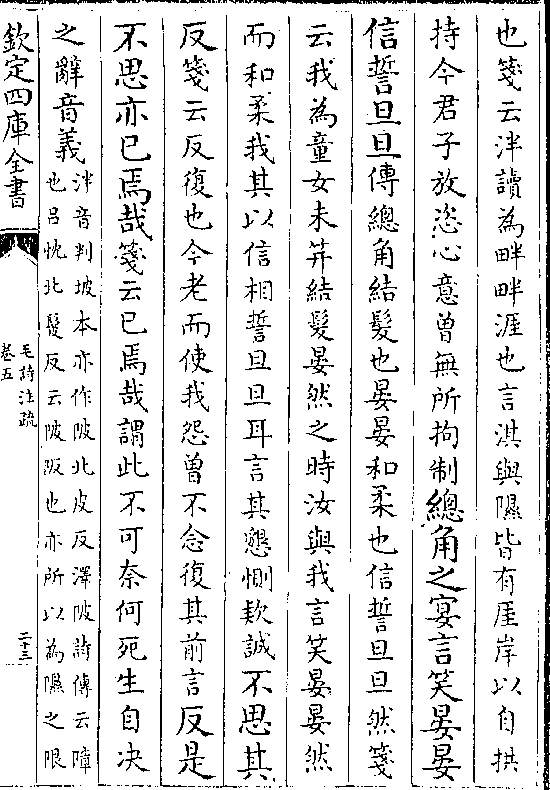 也箋云泮讀為畔畔涯也言淇與隰皆有厓岸以自拱
持今君子放恣心意曾無所拘制總角之宴言笑晏晏
信誓旦旦傳總角結髮也晏晏和柔也信誓旦旦然箋
云我為童女未笄結髮晏然之時汝與我言笑晏晏然
而和柔我其以信相誓旦旦耳言其懇惻欵誠不思其
反箋云反復也今老而使我怨曾不念復其前言反是
不思亦已焉哉箋云已焉哉謂此不可奈何死生自决
之辭音義泮音判坡本亦作陂北皮反澤陂詩傳云障
也呂忱北髲反云陂阪也亦所以為隰之限
欽定四庫全書
毛詩注疏
卷五
二十三